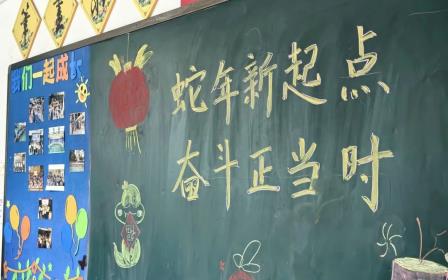 我们一起成长
蛇年新起点
奋斗正当时